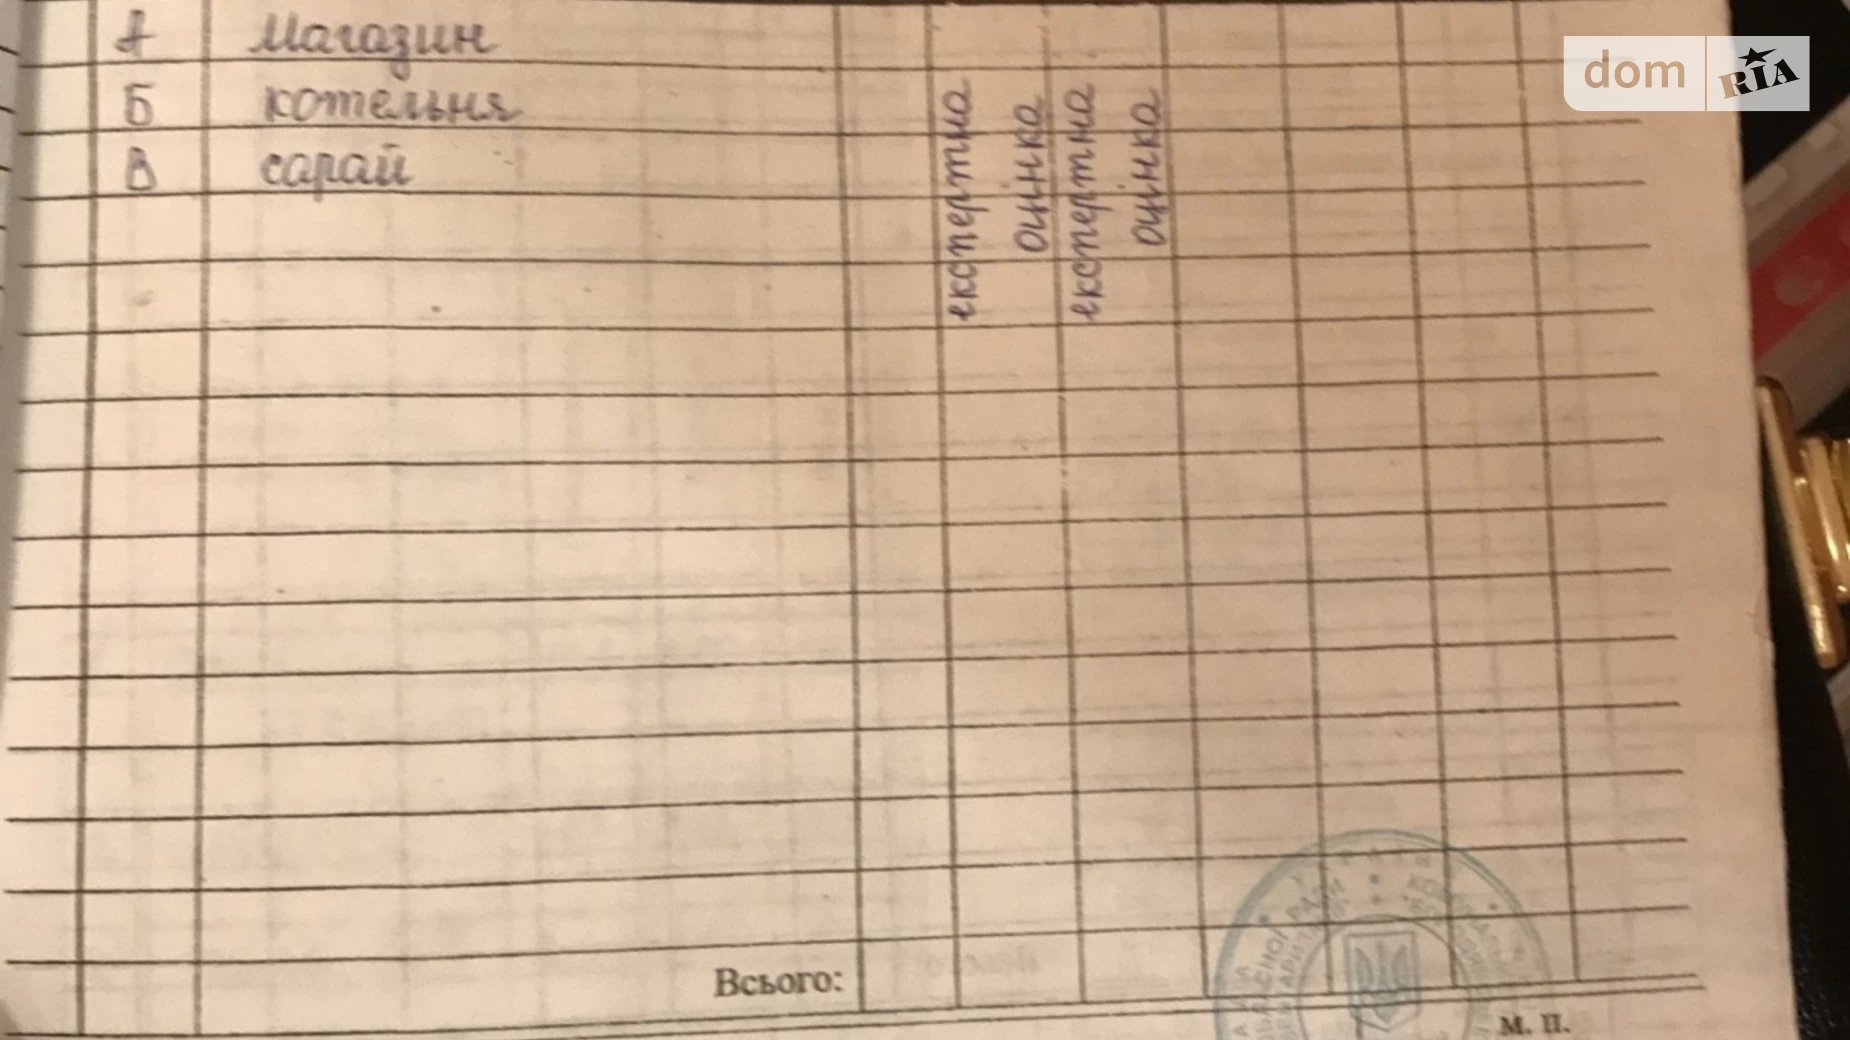 dom RIA
А Магазин
Б котельня
В сарай
експертна
оцінка
експертна
оцінка
Всього:
м. п.